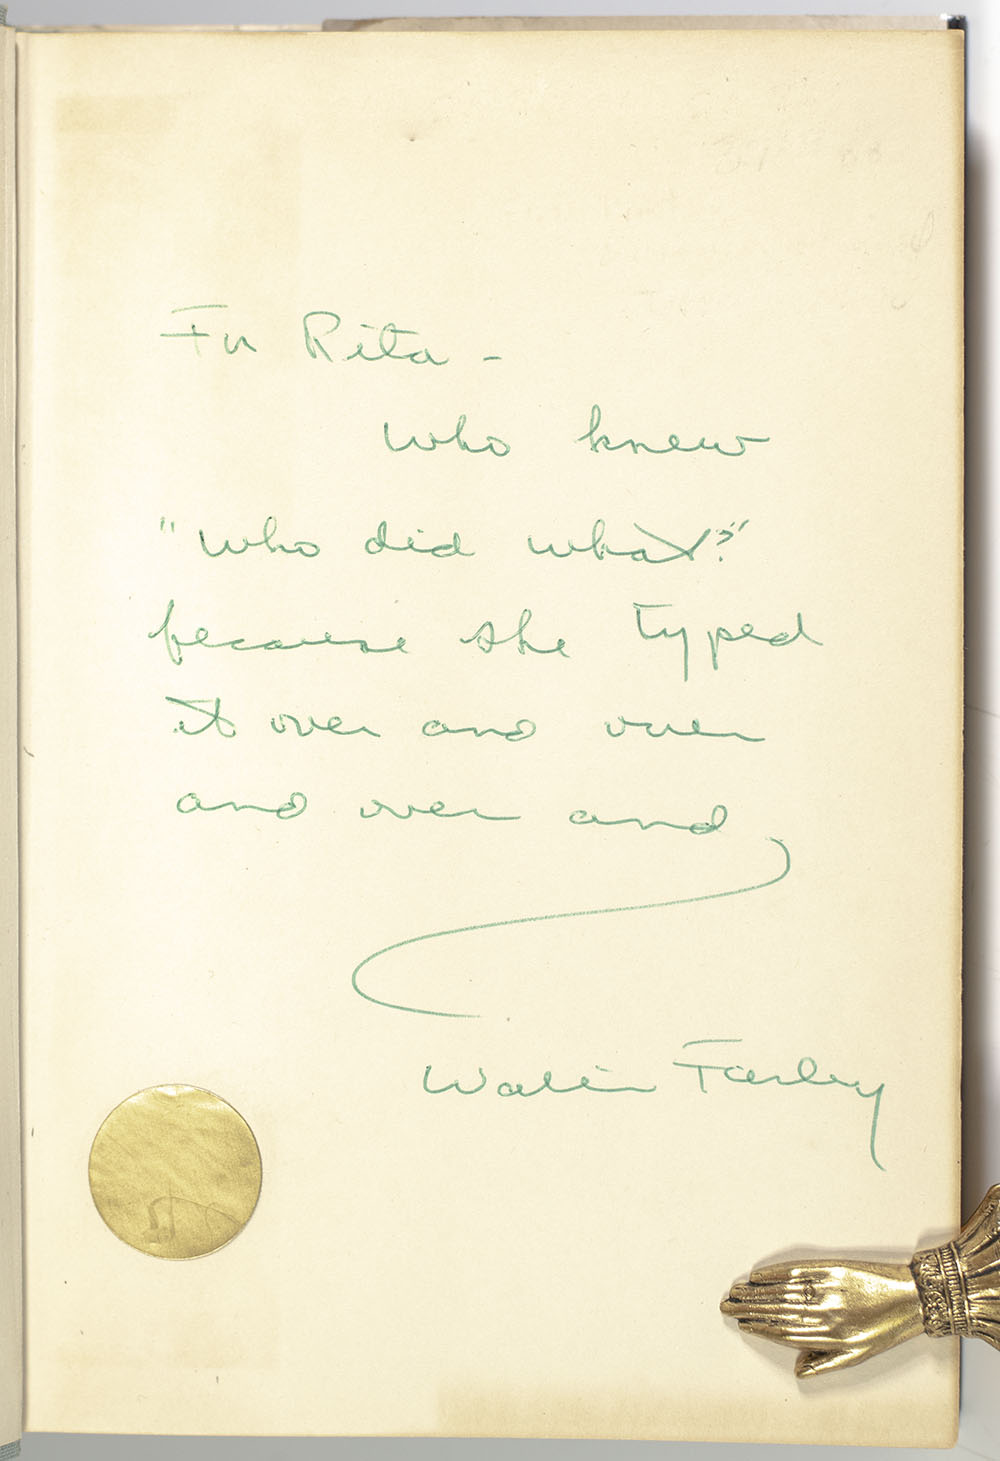 For Rita -
who knew
"who did what?"
because she typed
it over and over
and over and
Walter Farley